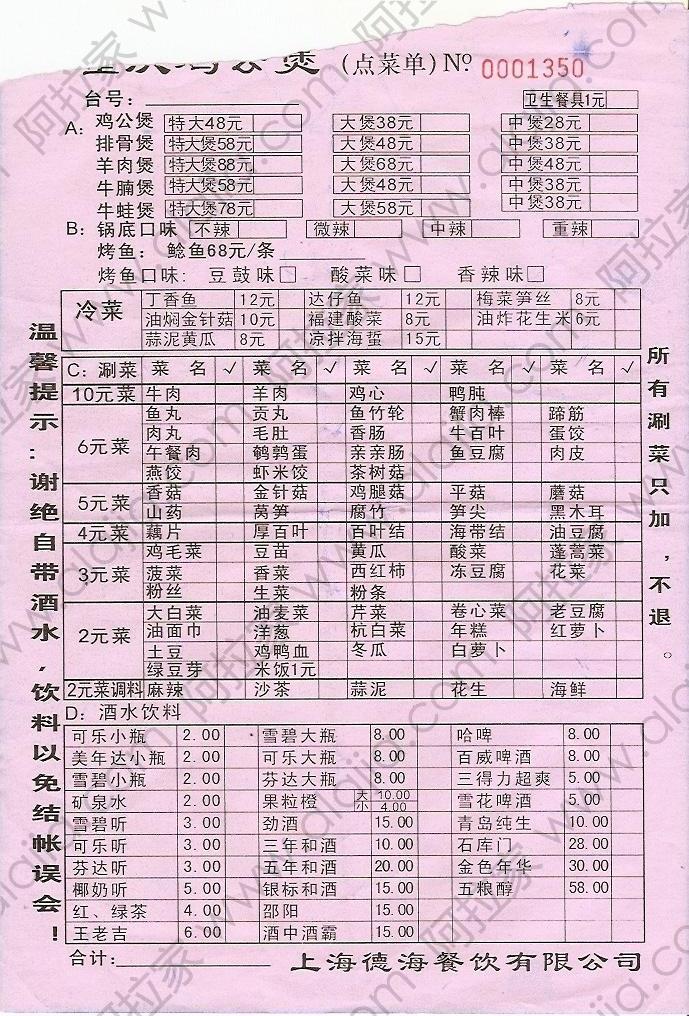 鸡公煲 (点菜单) No 0001350
台号: 卫生餐具1元
A: 鸡公煲 特大48元 大煲38元 中煲28元
排骨煲 特大煲58元 大煲48元 中煲38元
羊肉煲 特大煲88元 大煲68元 中煲48元
牛腩煲 特大煲58元 大煲48元 中煲38元
牛蛙煲 特大煲78元 大煲58元 中煲38元
B: 锅底口味 不辣 微辣 中辣 重辣
烤鱼: 鲶鱼68元/条
烤鱼口味: 豆鼓味□ 酸菜味□ 香辣味□
冷菜 丁香鱼 12元 达仔鱼 12元 梅菜笋丝 8元
油焖金针菇 10元 福建酸菜 8元 油炸花生米 6元
蒜泥黄瓜 8元 凉拌海蜇 15元
C: 涮菜 菜名 ✓ 菜名 ✓ 菜名 ✓ 菜名 ✓ 菜名 ✓
10元菜 牛肉 羊肉 鸡心 鸭肫
6元菜 鱼丸 贡丸 鱼竹轮 蟹肉棒 蹄筋
肉丸 毛肚 香肠 牛百叶 蛋饺
午餐肉 鹌鹑蛋 亲亲肠 鱼豆腐 肉皮
燕饺 虾米饺 茶树菇
5元菜 香菇 金针菇 鸡腿菇 平菇 蘑菇
山药 莴笋 腐竹 笋尖 黑木耳
4元菜 藕片 厚百叶 百叶结 海带结 油豆腐
3元菜 鸡毛菜 豆苗 黄瓜 酸菜 蓬蒿菜
菠菜 香菜 西红柿 冻豆腐 花菜
粉丝 生菜 粉条
2元菜 大白菜 油麦菜 芹菜 卷心菜 老豆腐
油面巾 洋葱 杭白菜 年糕 红萝卜
土豆 鸡鸭血 冬瓜 白萝卜
绿豆芽 米饭1元
2元菜调料 麻辣 沙茶 蒜泥 花生 海鲜
D: 酒水饮料
可乐小瓶 2.00 雪碧大瓶 8.00 哈啤 8.00
美年达小瓶 2.00 可乐大瓶 8.00 百威啤酒 8.00
雪碧小瓶 2.00 芬达大瓶 8.00 三得力超爽 5.00
矿泉水 2.00 果粒橙 大 10.00 小 4.00 雪花啤酒 5.00
雪碧听 3.00 劲酒 15.00 青岛纯生 10.00
可乐听 3.00 三年和酒 10.00 石库门 28.00
芬达听 3.00 五年和酒 20.00 金色年华 30.00
椰奶听 5.00 银标和酒 15.00 五粮醇 58.00
红、绿茶 4.00 邵阳 15.00
王老吉 6.00 酒中酒霸 15.00
合计: 上海德海餐饮有限公司
温馨提示:谢绝自带酒水,饮料以免结帐误会!
所有涮菜只加,不退。
阿拉家 www.alajia.com